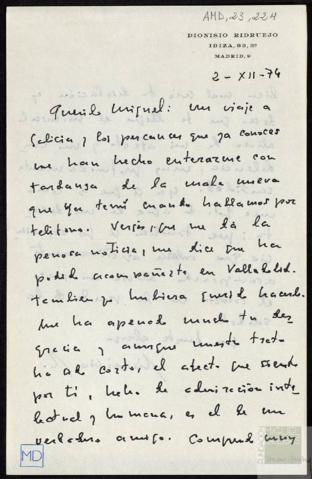 AMD, 23, 224
DIONISIO RIDRUEJO
IBIZA, 33, 2º
MADRID, 9
2-XII-74
Querido Miguel: Un viaje a
Galicia y los percances que ya conoces
me han hecho enterarme con
tardanza de la mala nueva
que ya temí cuando hablamos por
teléfono. Vergés, que me da la
penosa noticia, me dice que ha
podido acompañarte en Valladolid.
También yo hubiera querido hacerlo.
Me ha apenado mucho tu des
gracia y aunque nuestro trato
ha sido corto, el afecto que siento
por ti, hecho de admiración inte
lectual y humana, es el de un
verdadero amigo. Comprendo muy
MD